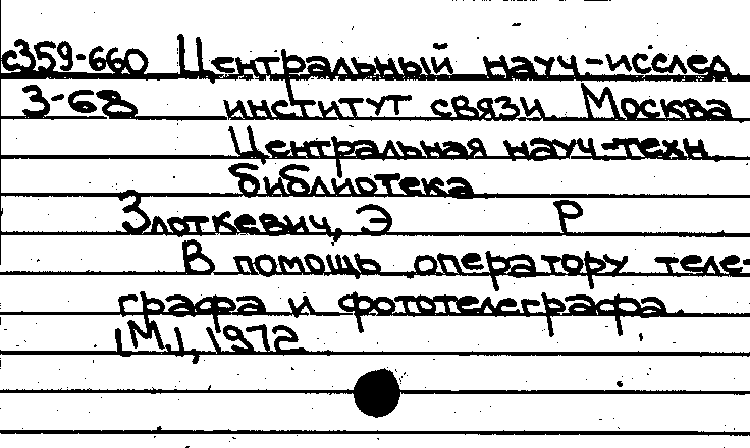 с359-660 Центральный науч-исслед
З-68 институт связи. Москва
Центральная науч.-техн.
библиотека
Злоткевич, Э Р
В помощь оператору теле-
графа и фототелеграфа.
[М.], 1972.